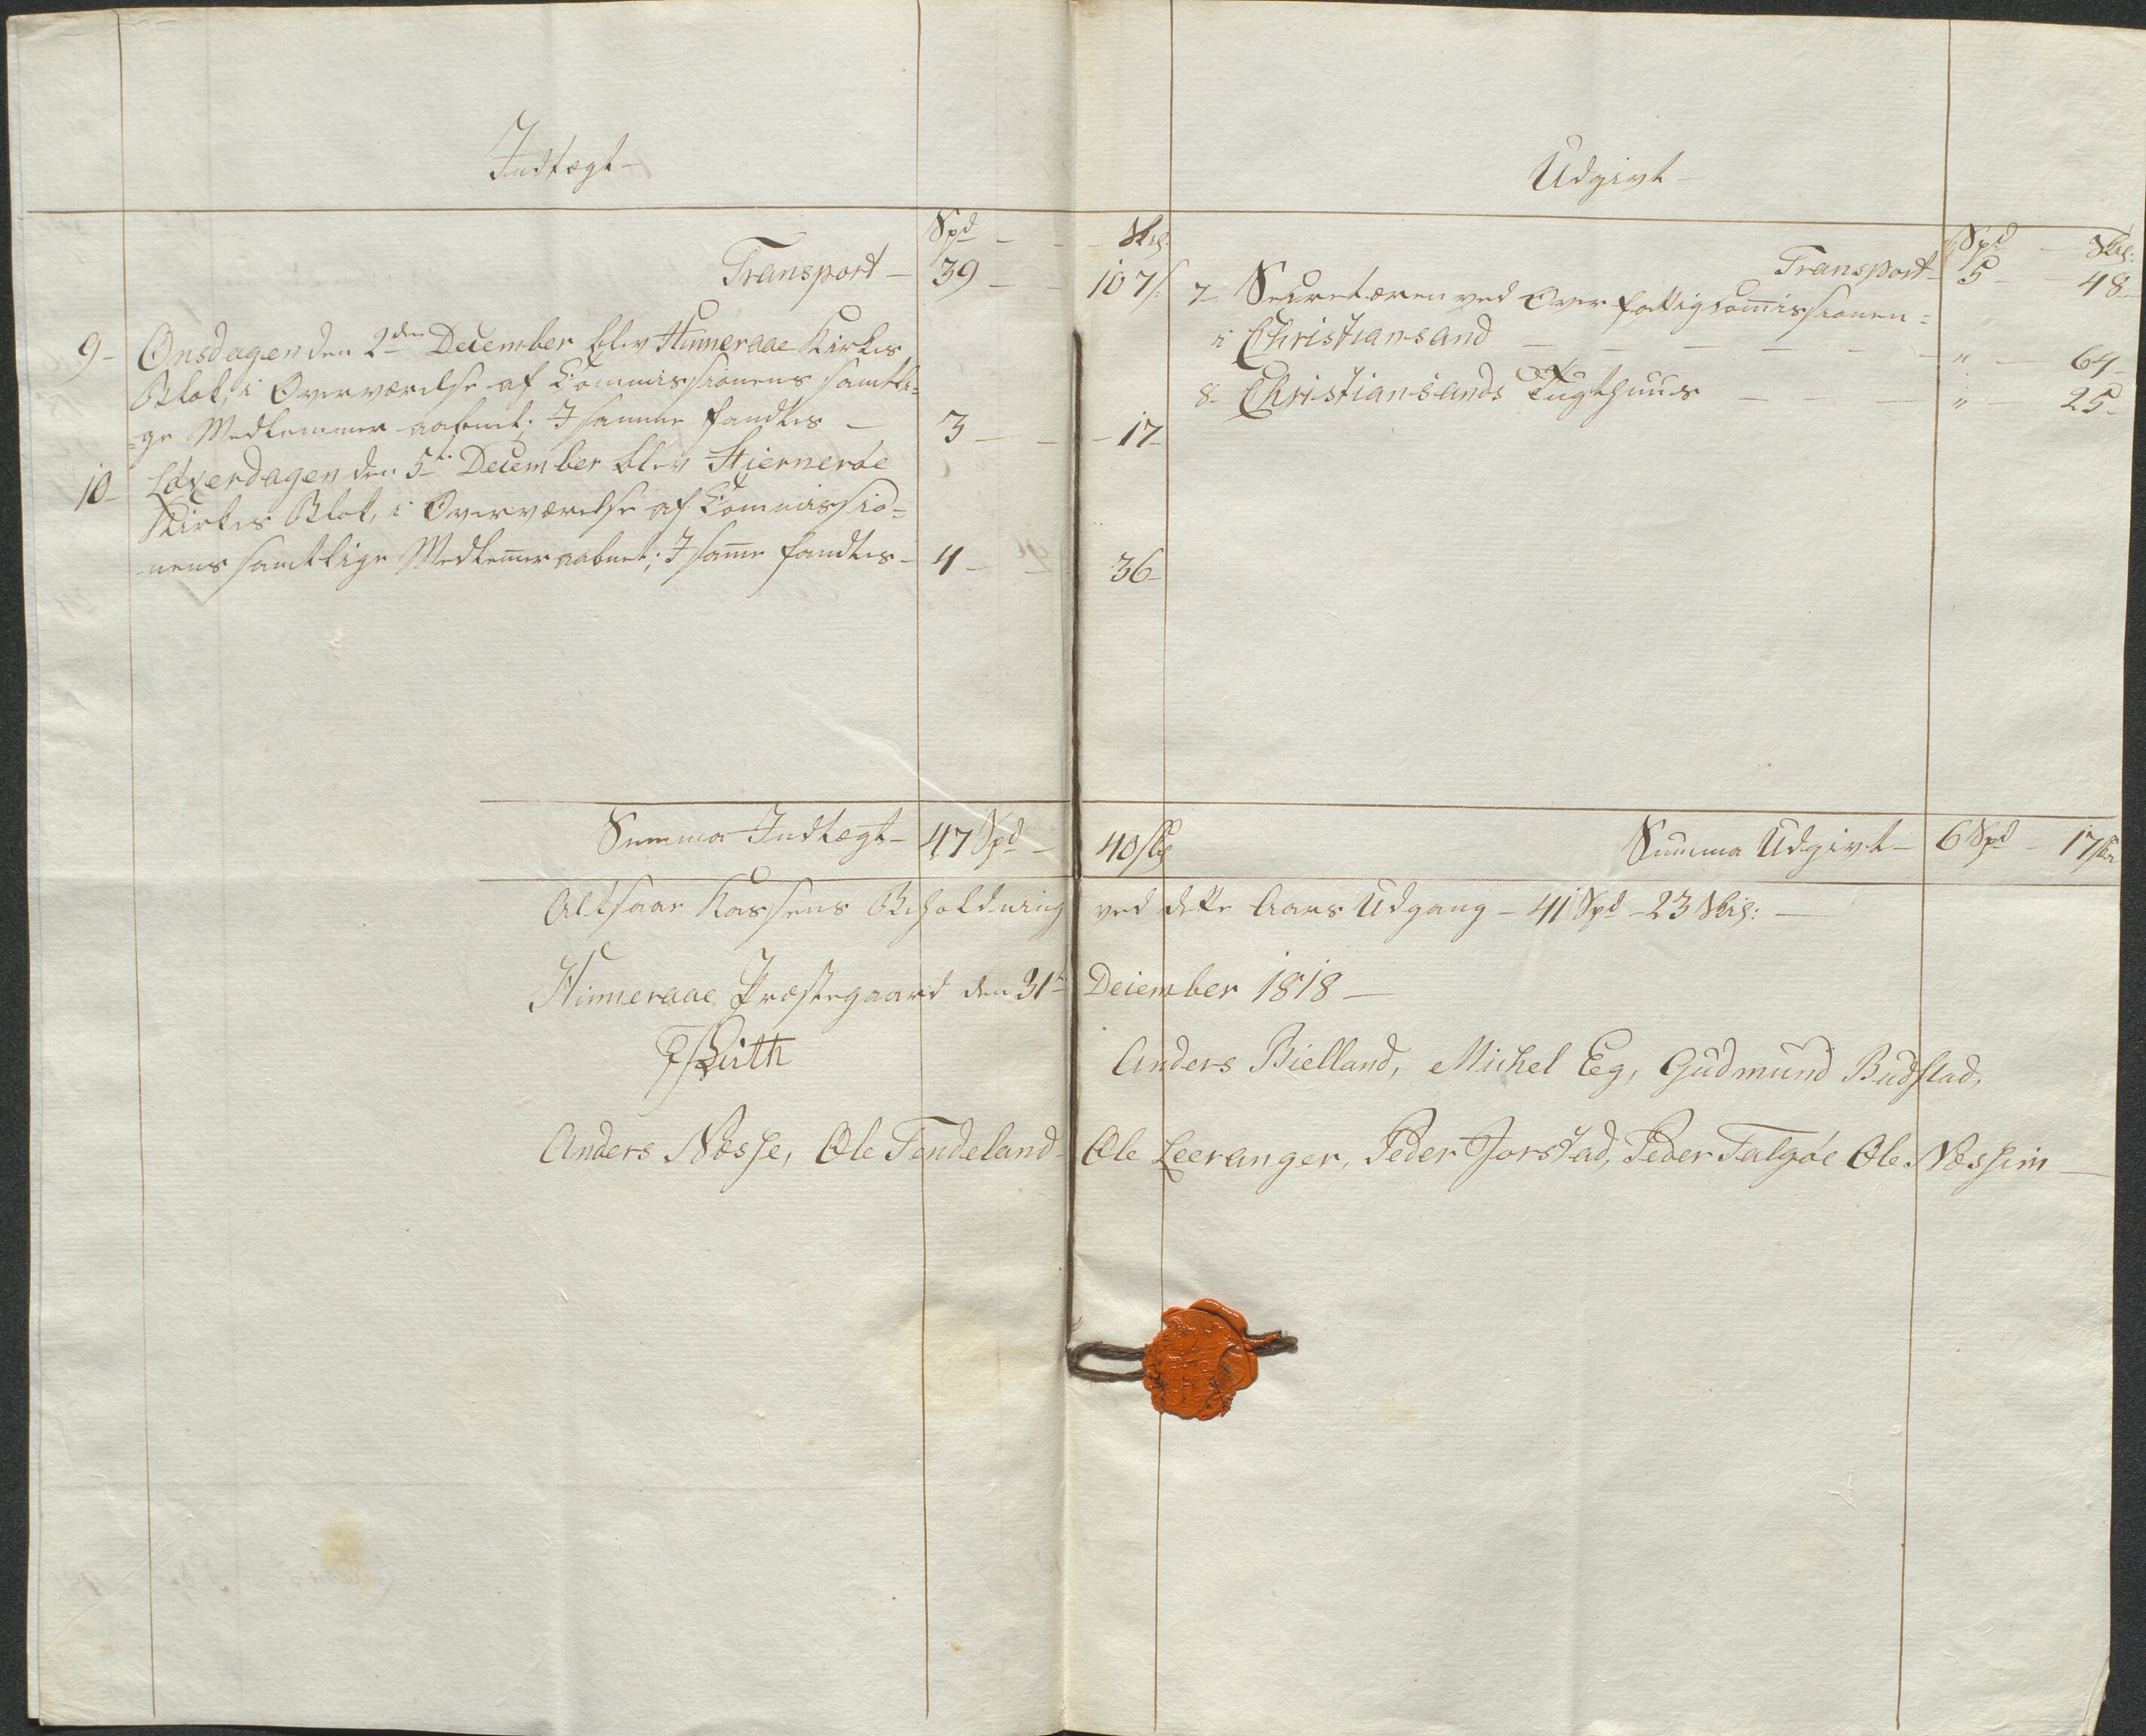 Indtægt-
Spd - - - Skil:
Transport - 39 - - 107 s.
9- Onsdagen den 2den December blev Hinneraae Kirkes
Blok, i Overværelse af Commissionens samtli=
=ge Medlemmer aabnet; I samme fandtes - 3 - - - 17-
10- Løverdagen den 5te December blev Stiernerøe
Kirkes Blok, i Overværelse af Commissio=
nens samtlige Medlem̄er aabnet; I sam̄e fandtes - 4 - - 36-
Summa Indtægt - 47 Spd - 40 sk
Udgivt-
Spd - Skil:
Transport - 5 - 48-
7- Secretæren ved Over fattigcom̄issionen=
i Christiansand - - - - - - " - 64-
8- Christiansands Tugthuus - - - " - 25-
Summa Udgivt - 6 Spd - 17 sk
Altsaa Kassens Beholdning ved dette Aars Udgang - 41 Spd - 23 Skil: -
Hinneraae Præstegaard den 31te December 1818 -
Anders Bielland, Michel Eg, Gudmund Budstad,
Anders Næsse, Ole Tendeland - Ole Leeranger, Peder Jorstad, Peder Talgøe Ole Næssim -